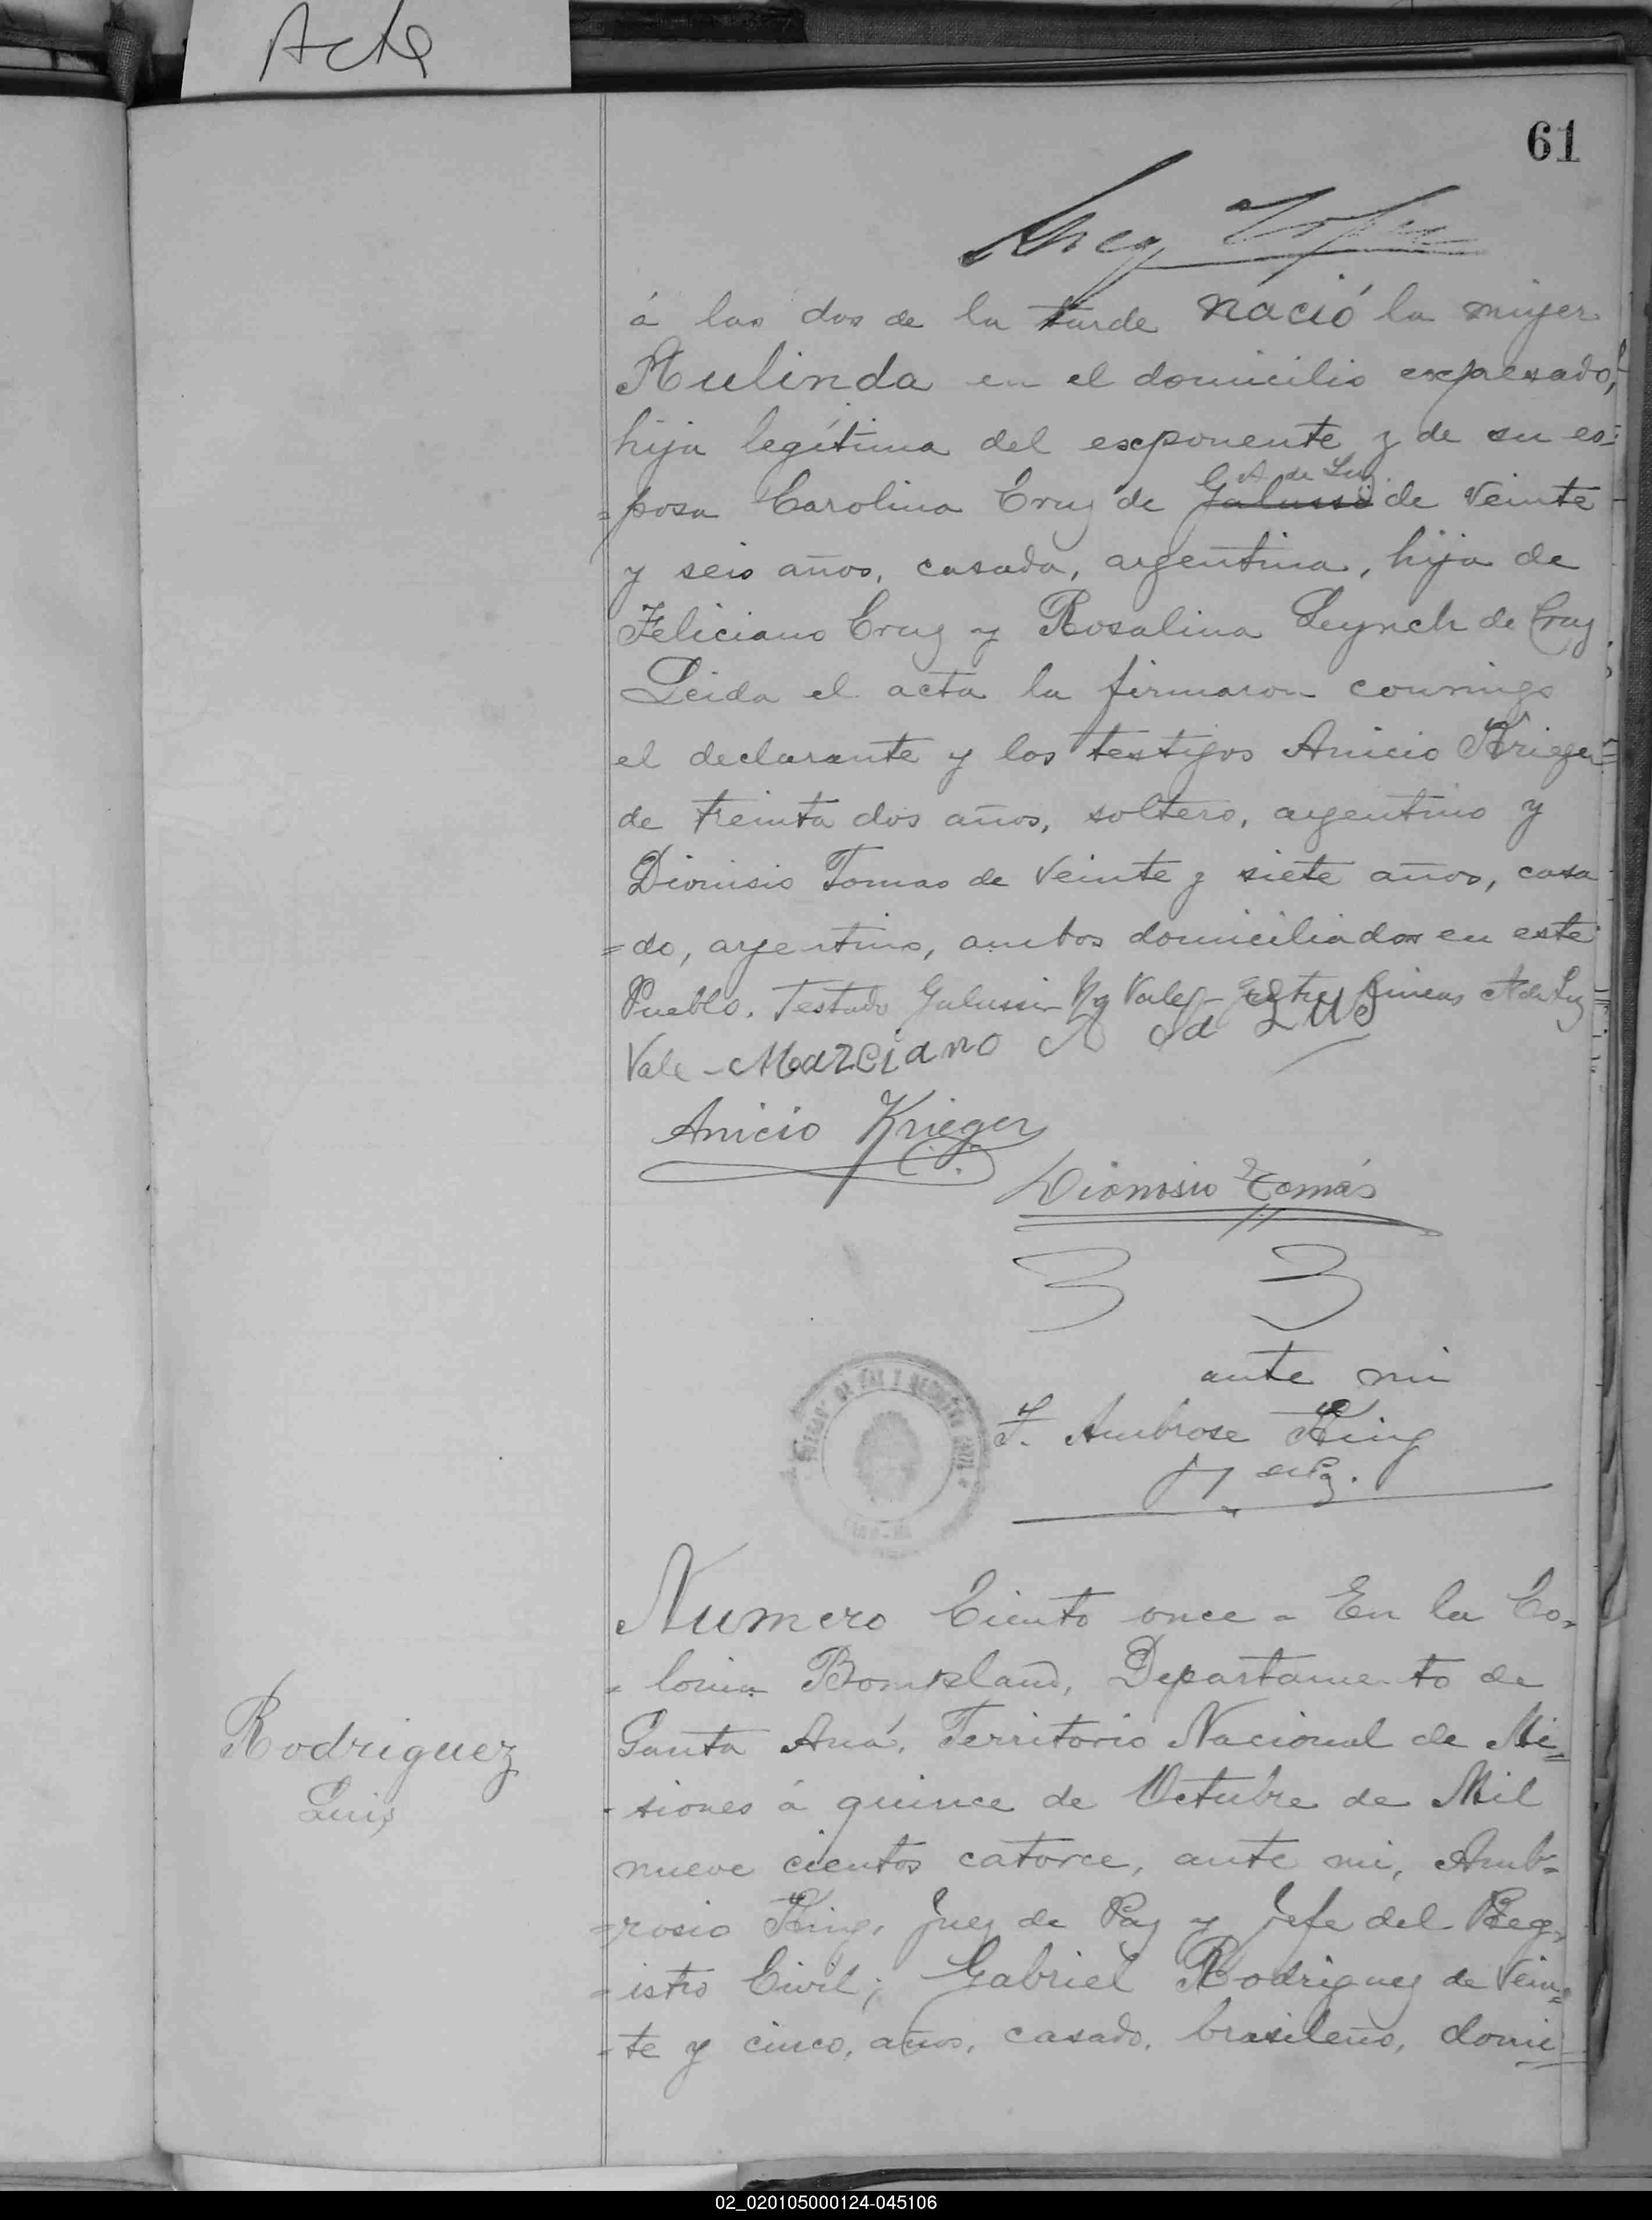 Acta
61
á las dos de la tarde nació la mujer
Rulinda en el domicilio expresado,
hija legítima del exponente y de su es=
A de Luz
=posa Carolina Cruz de Galussi de veinte
y seis años, casada, argentina, hija de
Feliciano Cruz y Rosalina Leynch de Cruz
Leida el acta la firmaron conmigo
el declarante y los testigos Anicio Krieger
de treinta dos años, soltero, argentino y
Dionisio Tomas de veinte y siete años, casa
=do, argentino, ambos domiciliados en este
Pueblo. Testado Galussi No Vale - Entre lineas A de Luz
Vale - Marciano A da Lus
Anicio Krieger
Dionisio Tomás
ante mi
F. Ambrose King
J de Paz.
Numero Ciento once - En la Co-
-lonia Bompland, Departamento de
Santa Ana, Territorio Nacional de Mi=
-siones á quince de Octubre de Mil
nueve cientos catorce, ante mi, Amb-
=rosio King, Juez de Paz y Jefe del Reg-
-istro Civil; Gabriel Rodriguez de vein=
-te y cinco, años, casado, brasileño, domi=
Rodriguez
Luis
02_020105000124-045106